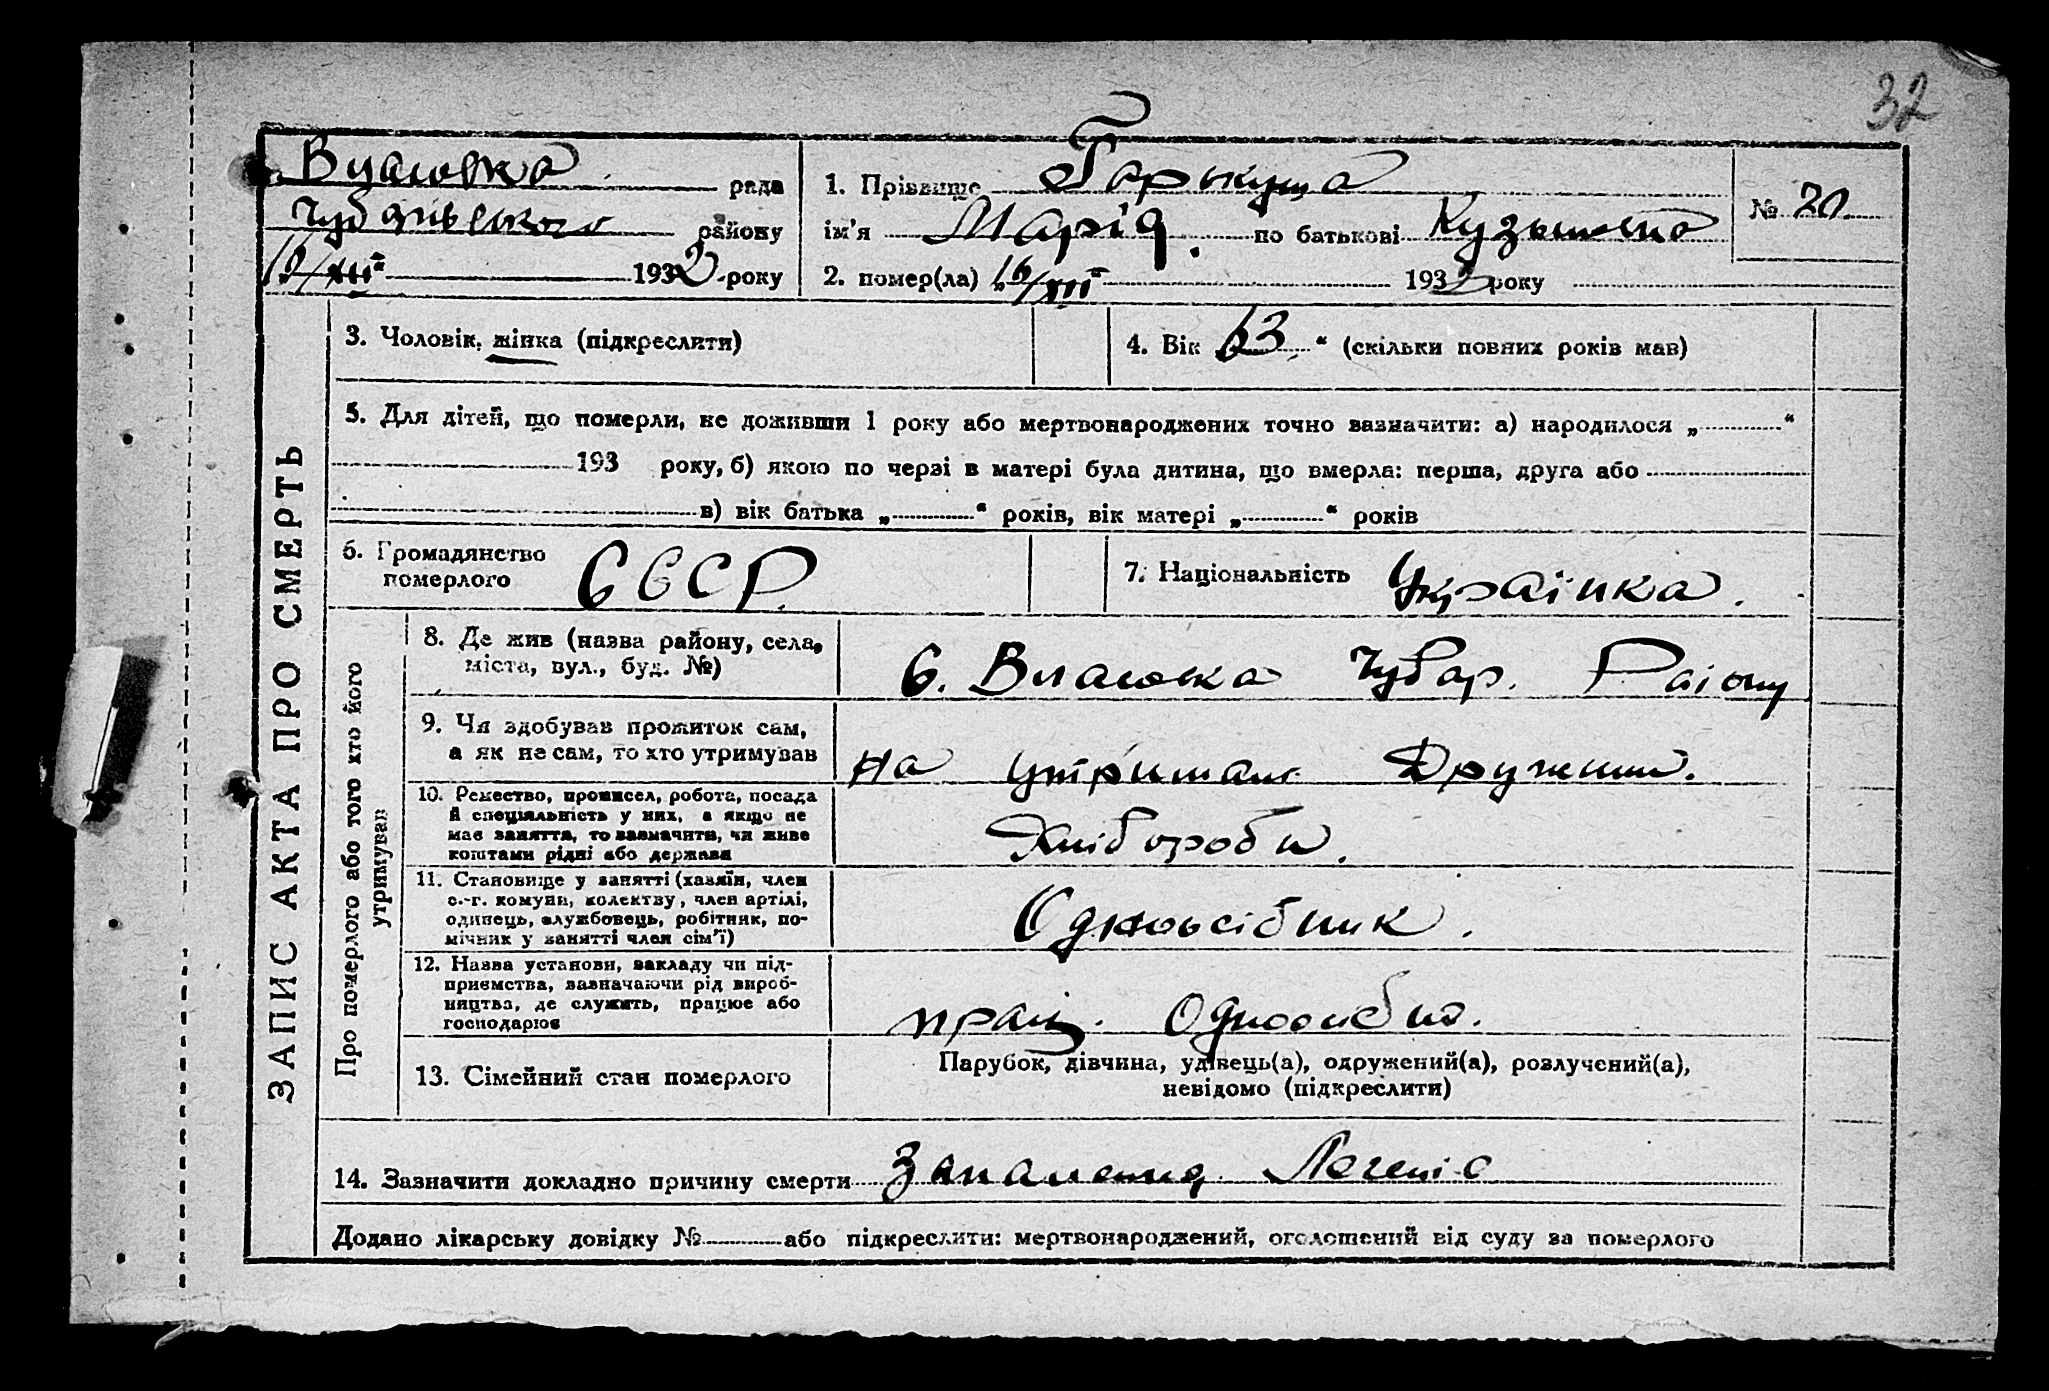 32
Власовка рада
Чубарівського району
16/XII 1932 року
1. Прізвище Гаркуша
ім'я Марія по батькові Кузьмовна
№ 20
2. помер(ла) „16/XII“ 1932 року
ЗАПИС АКТА ПРО СМЕРТЬ
3. Чоловік, жінка (підкреслити)
4. Вік 63 “ (скільки повних років мав)
5. Для дітей, що померли, не доживши 1 року або мертвонароджених точно зазначити: а) народилося „ “
193 року, б) якою по черзі в матері була дитина, що вмерла: перша, друга або
в) вік батька „ “ років, вік матері „ “ років
6. Громадянство
померлого СССР
7. Національність Українка.
Про померлого або того хто його
утримував
8. Де жив (назва району, села,
міста, вул., буд. №)
С. Власовка Чубар. Району
9. Чи здобував прожиток сам,
а як не сам, то хто утримував
на утриман. Дружини.
10. Ремество, промисел, робота, посада
й спеціяльність у них, а якщо не
має заняття, то зазначити, чи живе
коштами рідні або держави
Хлібороби.
11. Становище у занятті (хазяїн, член
с.-г. комуни, колективу, член артілі,
одинець, службовець, робітник, по-
мічник у занятті член сім'ї)
Одноосібник.
12. Назва установи, закладу чи під-
приємства, зазначаючи рід вироб-
ництва, де служить, працює або
господарює
прац.
13. Сімейний стан померлого
Парубок, дівчина, удівець(а), одружений(а), розлучений(а),
невідомо (підкреслити)
14. Зазначити докладно причину смерти Запалення Легенів
Додано лікарську довідку № або підкреслити: мертвонароджений, оголошений від суду за померлого